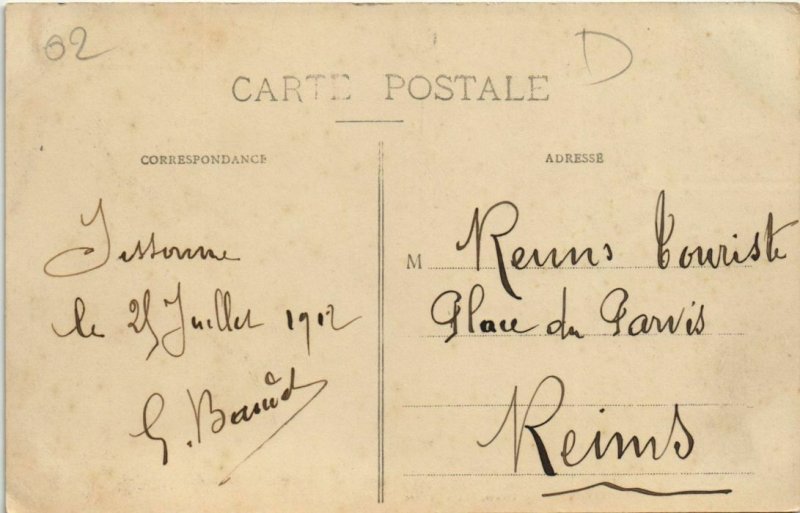 02
D
CARTE POSTALE
CORRESPONDANCE
ADRESSE
le 25 Juillet 1912
G.
M Reims Touriste
Place du Parvis
Reims